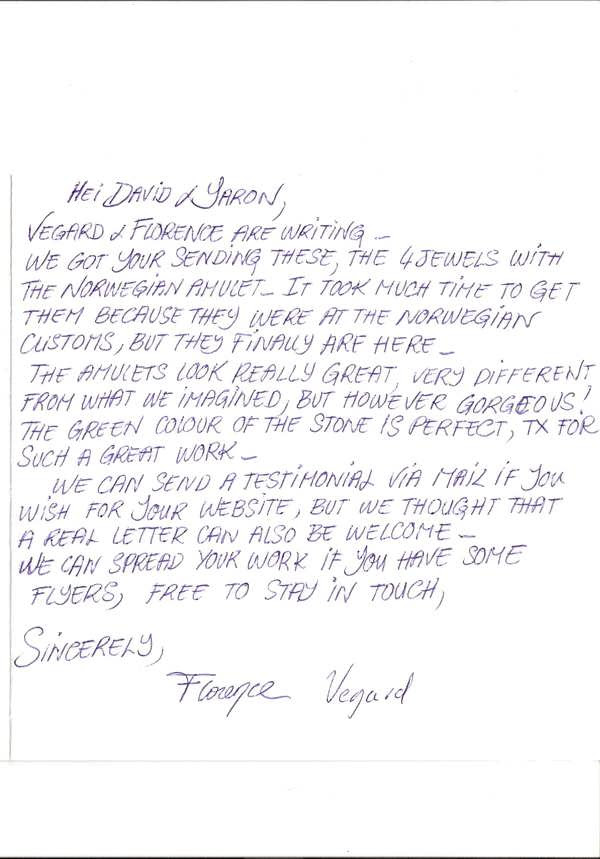 HEi DAViD & YARON,
VEGARD & FLORENCE ARE WRITING _
WE GOT YOUR SENDING THESE, THE 4 JEWELS WITH
THE NORWEGIAN AMULET_ IT TOOK MUCH TIME TO GET
THEM BECAUSE THEY WERE AT THE NORWEGIAN
CUSTOMS, BUT THEY FINALLY ARE HERE _
THE AMULETS LOOK REALLY GREAT, VERY DIFFERENT
FROM WHAT WE IMAGINED, BUT HOWEVER GORGEOUS!
THE GREEN COLOUR OF THE STONE IS PERFECT, TX FOR
SUCH A GREAT WORK _
WE CAN SEND A TESTIMONIAL VIA MAIL IF YOU
WISH FOR YOUR WEBSITE, BUT WE THOUGHT THAT
A REAL LETTER CAN ALSO BE WELCOME _
WE CAN SPREAD YOUR WORK IF YOU HAVE SOME
FLYERS, FREE TO STAY IN TOUCH,
SINCERELY,
Florence Vegard